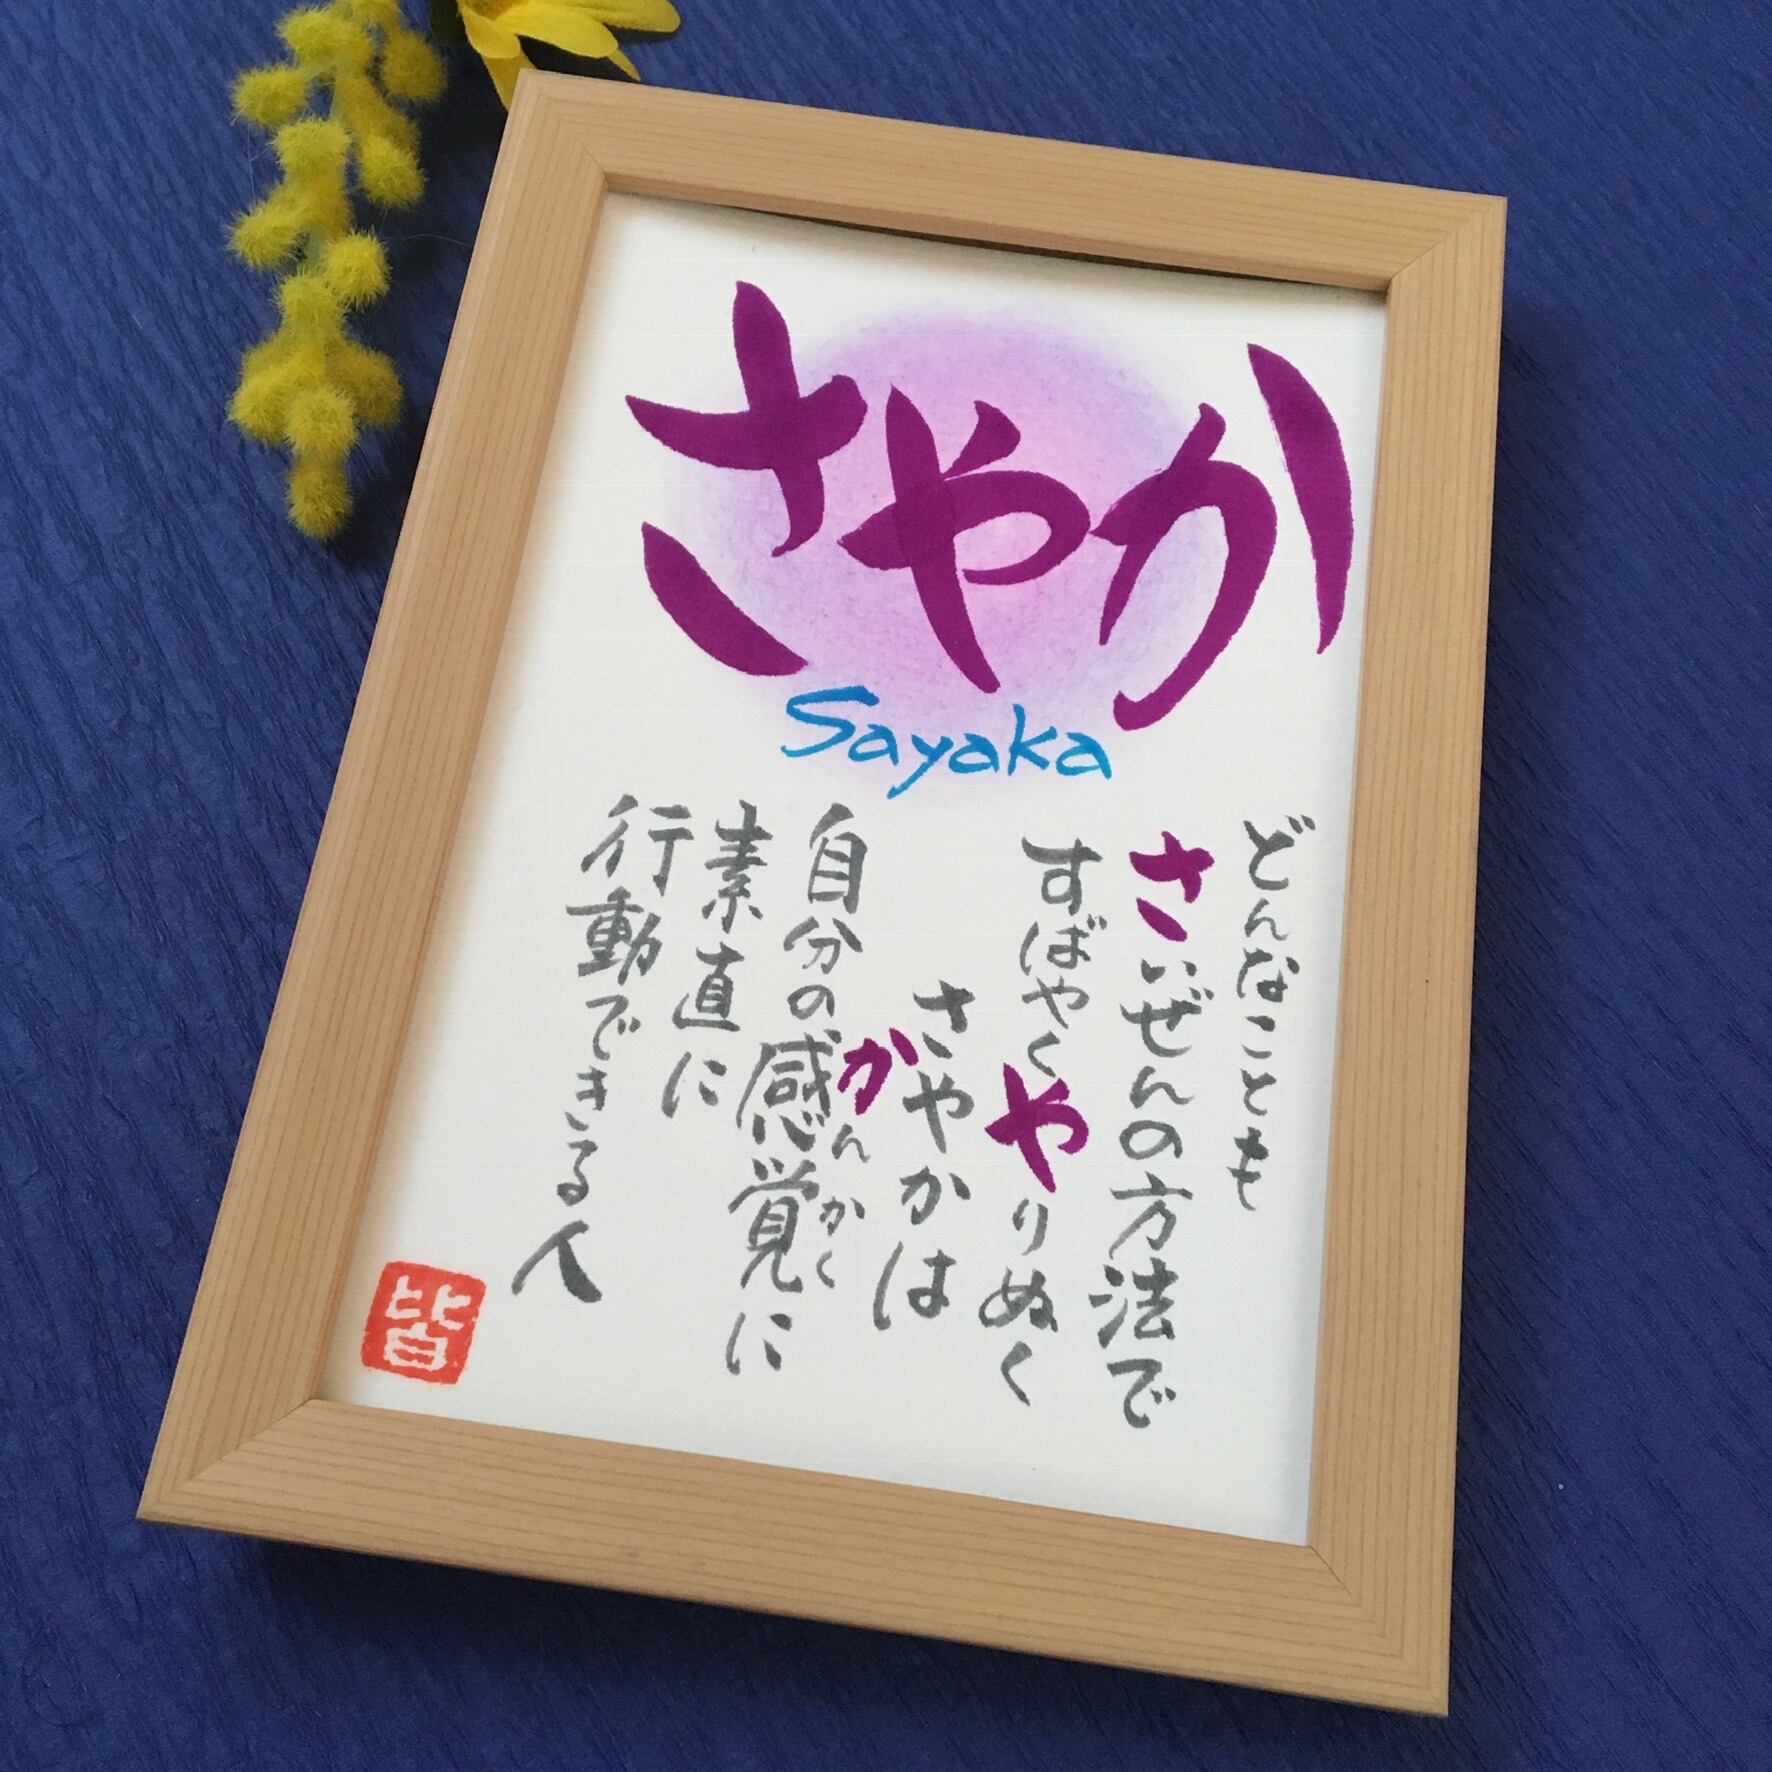 さやか
Sayaka
どんなことも
さいぜんの方法で
すばやくやりぬく
さやかは
自分の感覚に
かんかく
素直に
行動できる人
皆